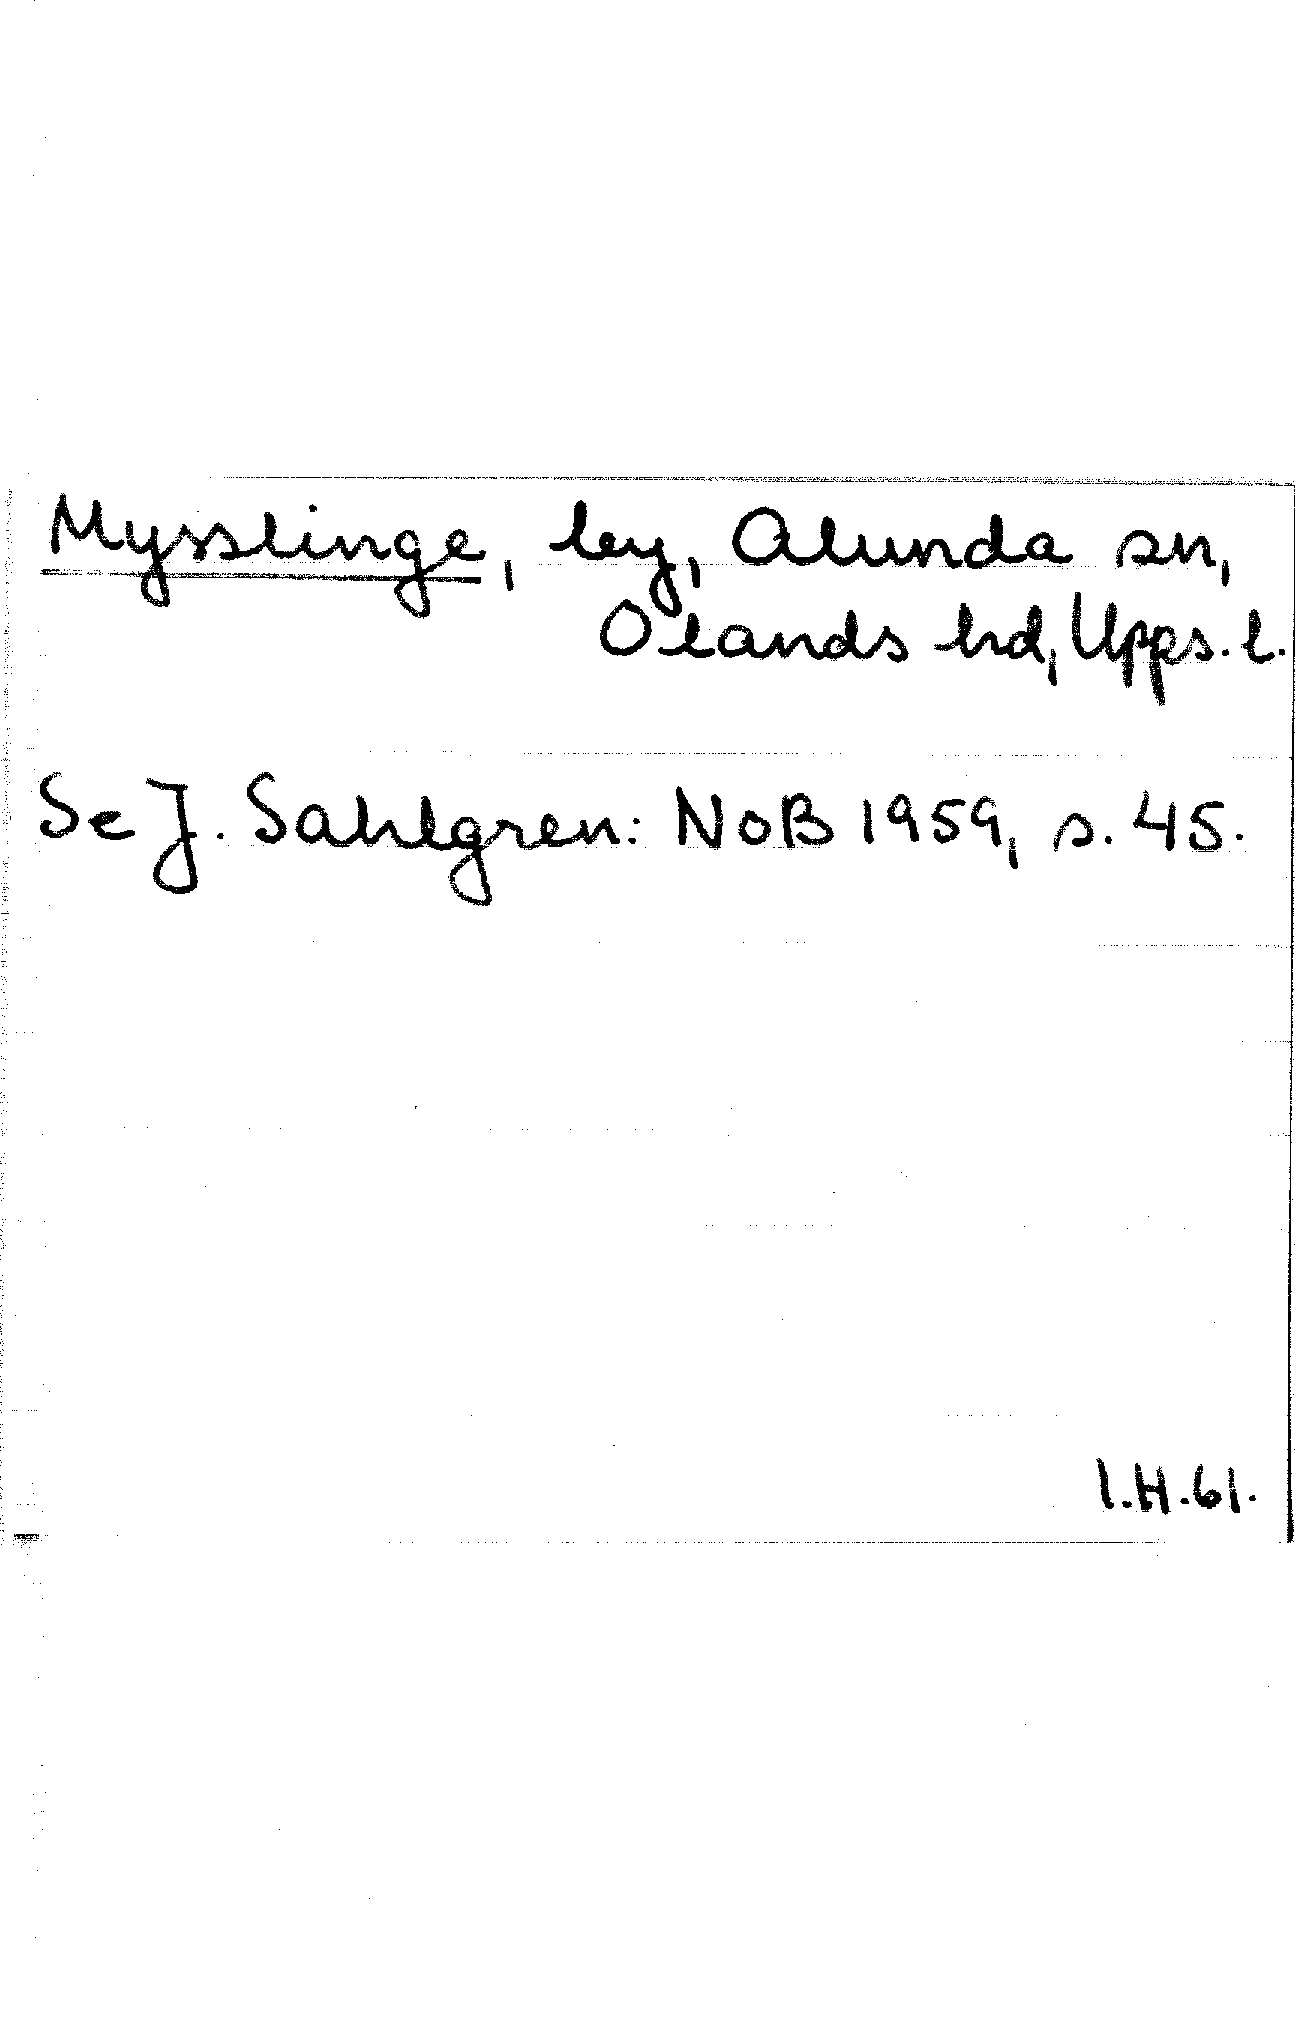 Mysslinge, by, Alunda sn,
Olands hd, Upps. l.
Se J. Sahlgren: NoB 1959, s. 45.
I.H.61.